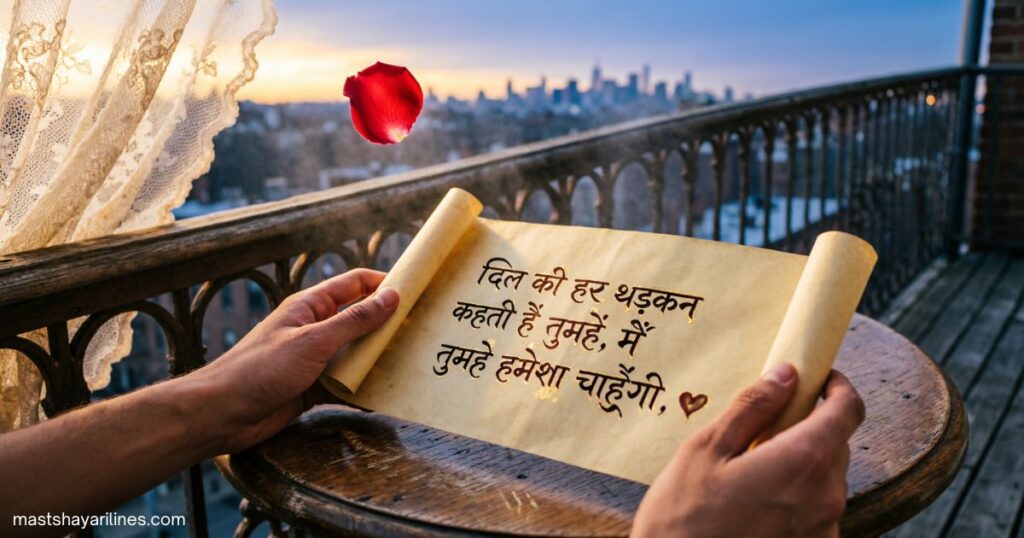 दिल की हर थड़कन
कहती हैं तुमहें, मैं
तुमहे हमेशा चाहेंगी,
mastshayarilines.com